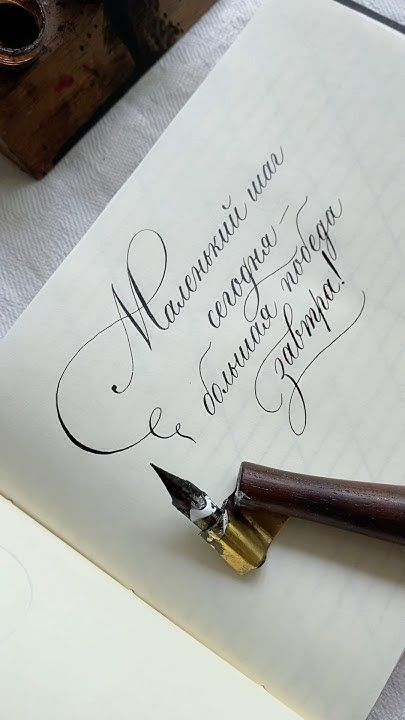 Маленький шаг
сегодня –
большая победа
завтра!